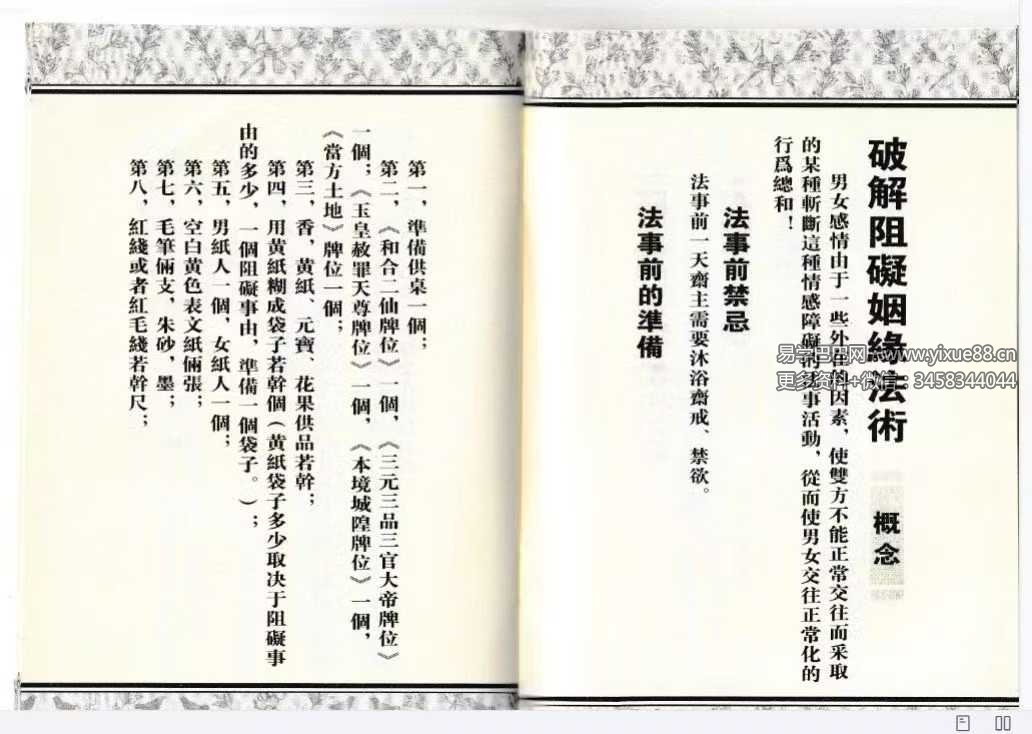 破解阻礙姻緣法術
概念
男女感情由于一些外在的因素，使雙方不能正常交往而采取
的某種斬斷這種情感障礙的法事活動，從而使男女交往正常化的
行爲總和！
法事前禁忌
法事前一天齋主需要沐浴齋戒、禁欲。
法事前的準備
第一，準備供桌一個；
第二，《和合二仙牌位》一個，《三元三品三官大帝牌位》
一個；《玉皇赦罪天尊牌位》一個，《本境城隍牌位》一個，
《當方土地》牌位一個；
第三，香，黄紙、元寶、花果供品若幹；
第四，用黄紙糊成袋子若幹個（黄紙袋子多少取决于阻礙事
由的多少，一個阻礙事由，準備一個袋子。）；
第五，男紙人一個，女紙人一個；
第六，空白黄色表文紙倆張；
第七，毛筆倆支，朱砂，墨；
第八，紅綫或者紅毛綫若幹尺；
易学巴巴网 www.yixue88.cn
更多资料+微信：3458344044